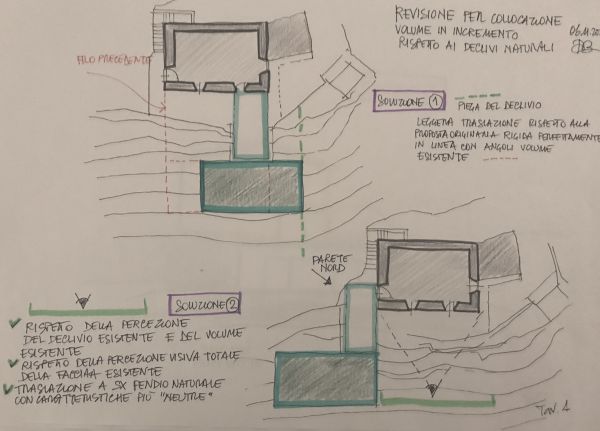 REVISIONE PER COLLOCAZIONE
VOLUME IN INCREMENTO
RISPETTO AI DECLIVI NATURALI
FILO PRECEDENTE
SOLUZIONE 1
PIEGA DEL DECLIVIO
LEGGERA TRASLAZIONE RISPETTO ALLA
PROPOSTA ORIGINARIA RIGIDA PERFETTAMENTE
IN LINEA CON ANGOLI VOLUME
ESISTENTE
PARETE
NORD
SOLUZIONE 2
RISPETTO DELLA PERCEZIONE
DEL DECLIVIO ESISTENTE E DEL VOLUME
ESISTENTE
RISPETTO DELLA PERCEZIONE VISIVA TOTALE
DELLA FACCIATA ESISTENTE
TRASLAZIONE A SX PENDIO NATURALE
CON CARATTERISTICHE PIÙ "NEUTRE"